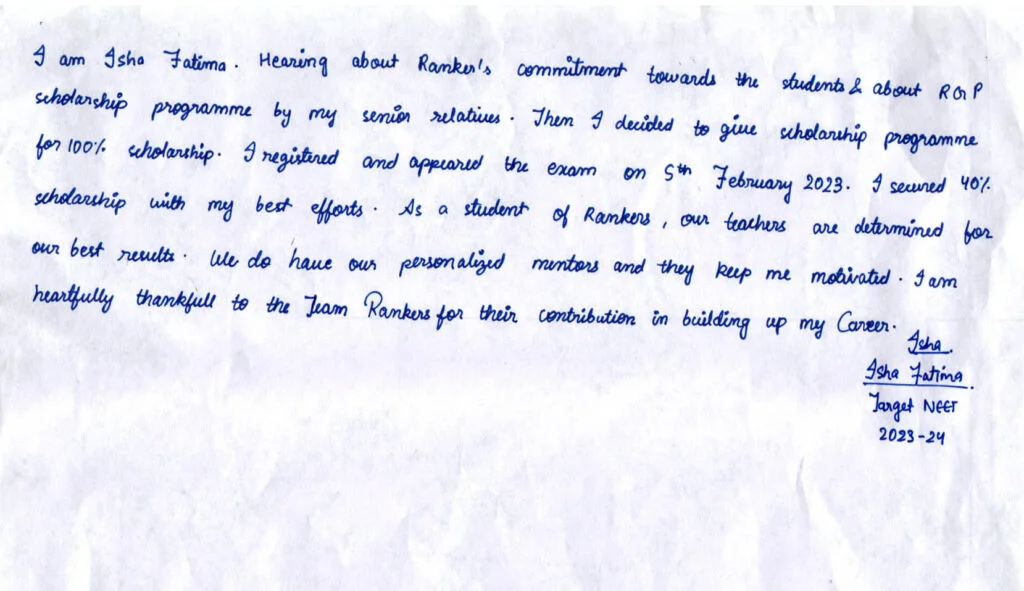 I am Isha Fatima. Hearing about Ranker's commitment towards the students & about R G P
scholarship programme by my senior relatives. Then I decided to give scholarship programme
for 100% scholarship. I registered and appeared the exam on 5th February 2023. I secured 40%
scholarship with my best efforts. As a student of Rankers, our teachers are determined for
our best results. We do have our personalized mentors and they keep me motivated. I am
heartfully thankfull to the Team Rankers for their contribution in building up my Career.
Isha.
Isha Fatima.
Target NEET
2023-24